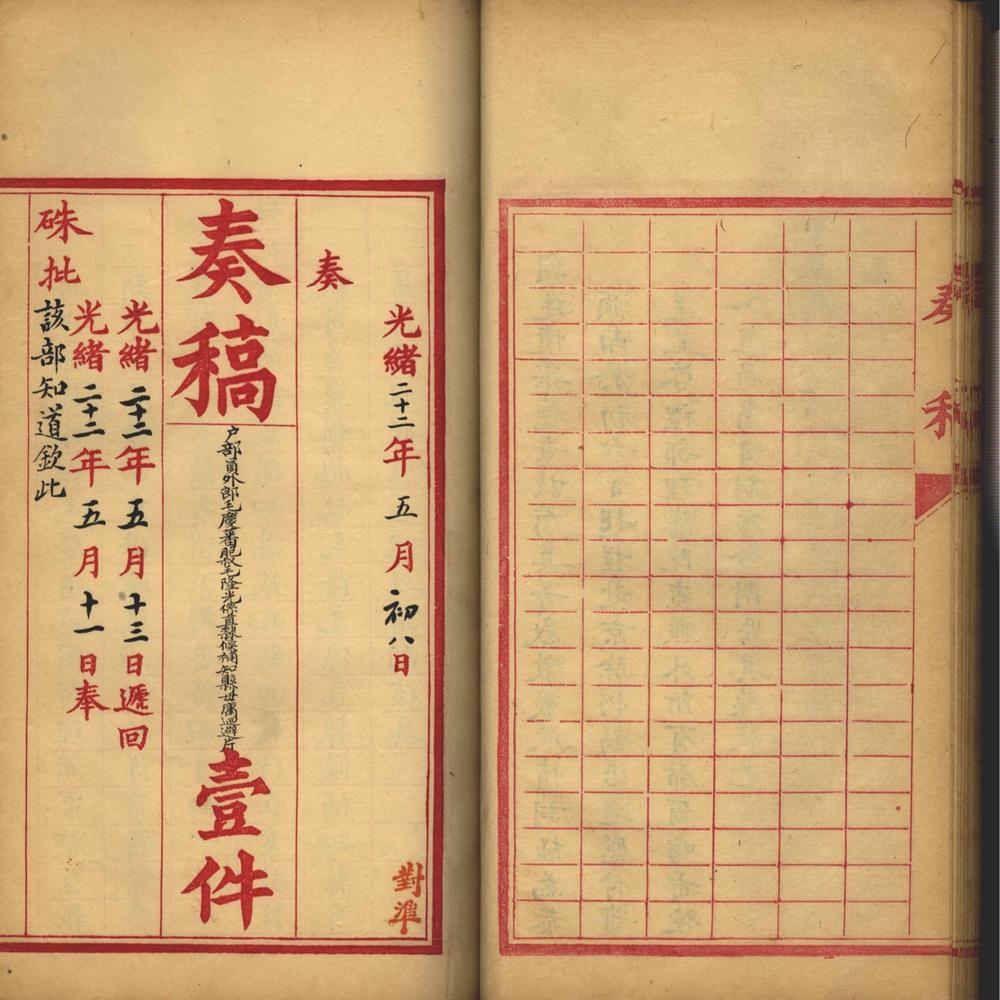 奏稿
光緒二十二年五月初八日
對準
奏
奏稿
戶部員外郎毛慶蕃胞叔毛隆光係直隸候補知縣毋庸迴避片
壹件
光緒二十二年五月十三日遞回
光緒二十二年五月十一日奉
硃批該部知道欽此